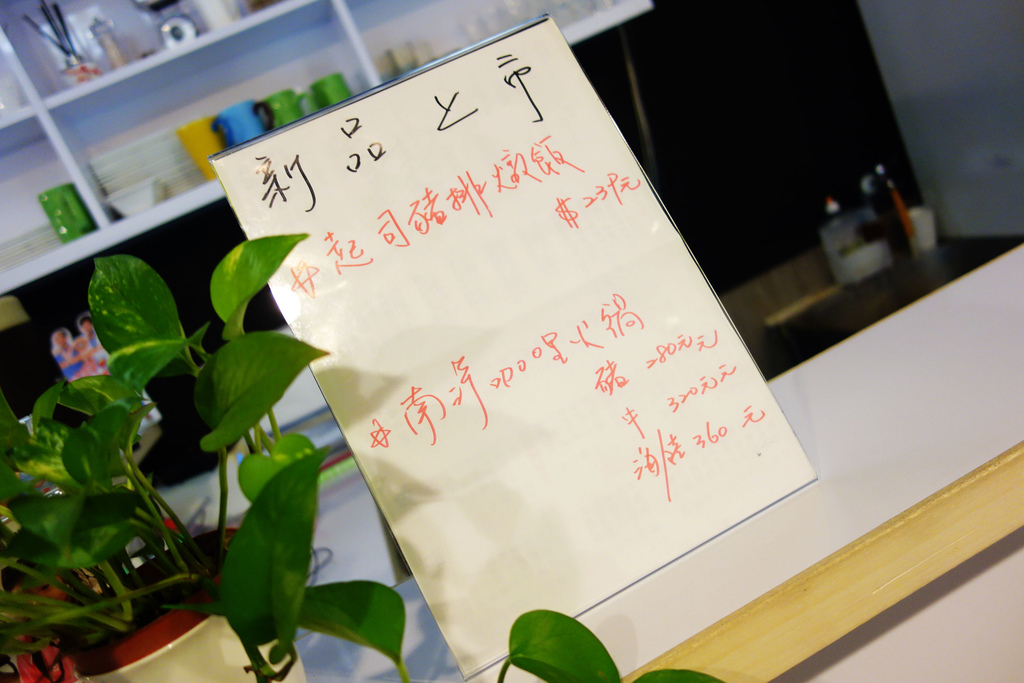 新品上市
# 起司豬排燉飯
$ 239元
# 南洋咖哩火鍋
豬 280元
牛 320元
海陸 360 元